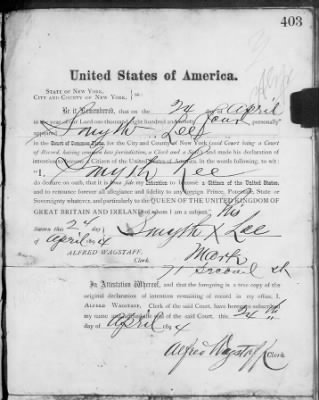 403
United States of America.
STATE OF NEW YORK,
CITY AND COUNTY OF NEW YORK, } ss:
Be it Remembered, that on the 24 day of April
in the year of our Lord one thousand eight hundred and personally
appeared Smyth Lee
in the Court of Common Pleas, for the City and County of New York (said Court being a Court of
Record, having common law jurisdiction, a Clerk and a Seal) and made his declaration of
intention to become a Citizen of the United States of America, in the following words, to wit:
"I, Smyth Lee
do declare on oath, that it is bona fide my intention to become a Citizen of the United States,
and to renounce forever all allegiance and fidelity to any foreign Prince, Potentate, State or
Sovereignty whatever, and particularly to the QUEEN OF THE UNITED KINGDOM OF
GREAT BRITAIN AND IRELAND, of whom I am a subject."
Sworn this 24 his
day of April Smyth X Lee
ALFRED WAGSTAFF, Mark
Clerk.
71
In Attestation Whereof, and that the foregoing is a true copy of the
original declaration of intention remaining of record in my office, I
ALFRED WAGSTAFF, Clerk of the said Court, have hereunto subscribed
my name and affixed the seal of the said Court, this 24th
day of April 4
Alfred Wagstaff Clerk